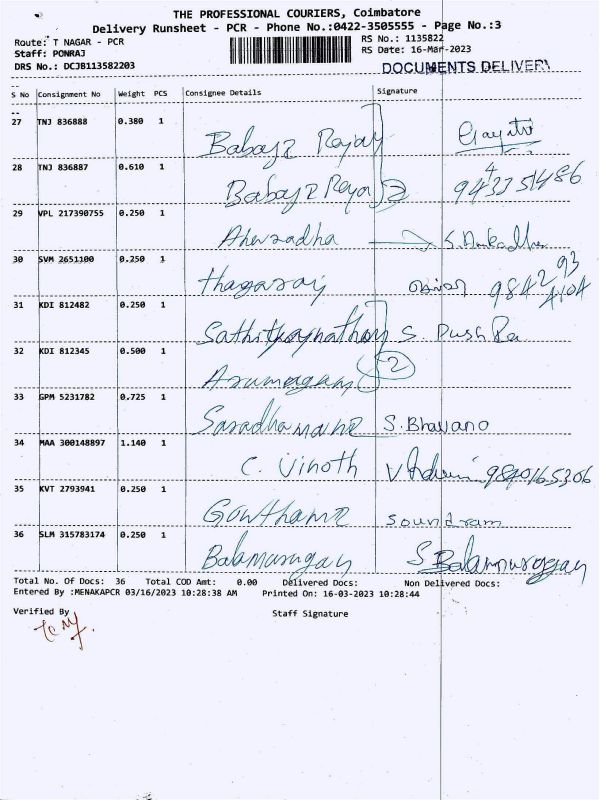 THE PROFESSIONAL COURIERS, Coimbatore
Delivery Runsheet - PCR - Phone No.:0422-3505555 - Page No.:3
Route: T NAGAR - PCR RS No.: 1135822
Staff: PONRAJ RS Date: 16-Mar-2023
DRS No.: DCJB113582203 DOCUMENTS DELIVERY
S No Consignment No Weight PCS Consignee Details Signature
27 TNJ 836888 0.380 1 Gayatri
28 TNJ 836887 0.610 1 2
29 VPL 217390755 0.250 1
30 SVM 2651100 0.250 1 Thagaray
31 KDI 812482 0.250 1 S Pushpa
32 KDI 812345 0.500 1 Arumugam 2
33 GPM 5231782 0.725 1 S. Bhavano
34 MAA 300148897 1.140 1 C. Vinoth 9840165306
35 KVT 2793941 0.250 1 Gowthame soundram
36 SLM 315783174 0.250 1 Balamurugan S Balamurugan
Total No. Of Docs: 36 Total COD Amt: 0.00 Delivered Docs: Non Delivered Docs:
Entered By :MENAKAPCR 03/16/2023 10:28:38 AM Printed On: 16-03-2023 10:28:44
Verified By Staff Signature